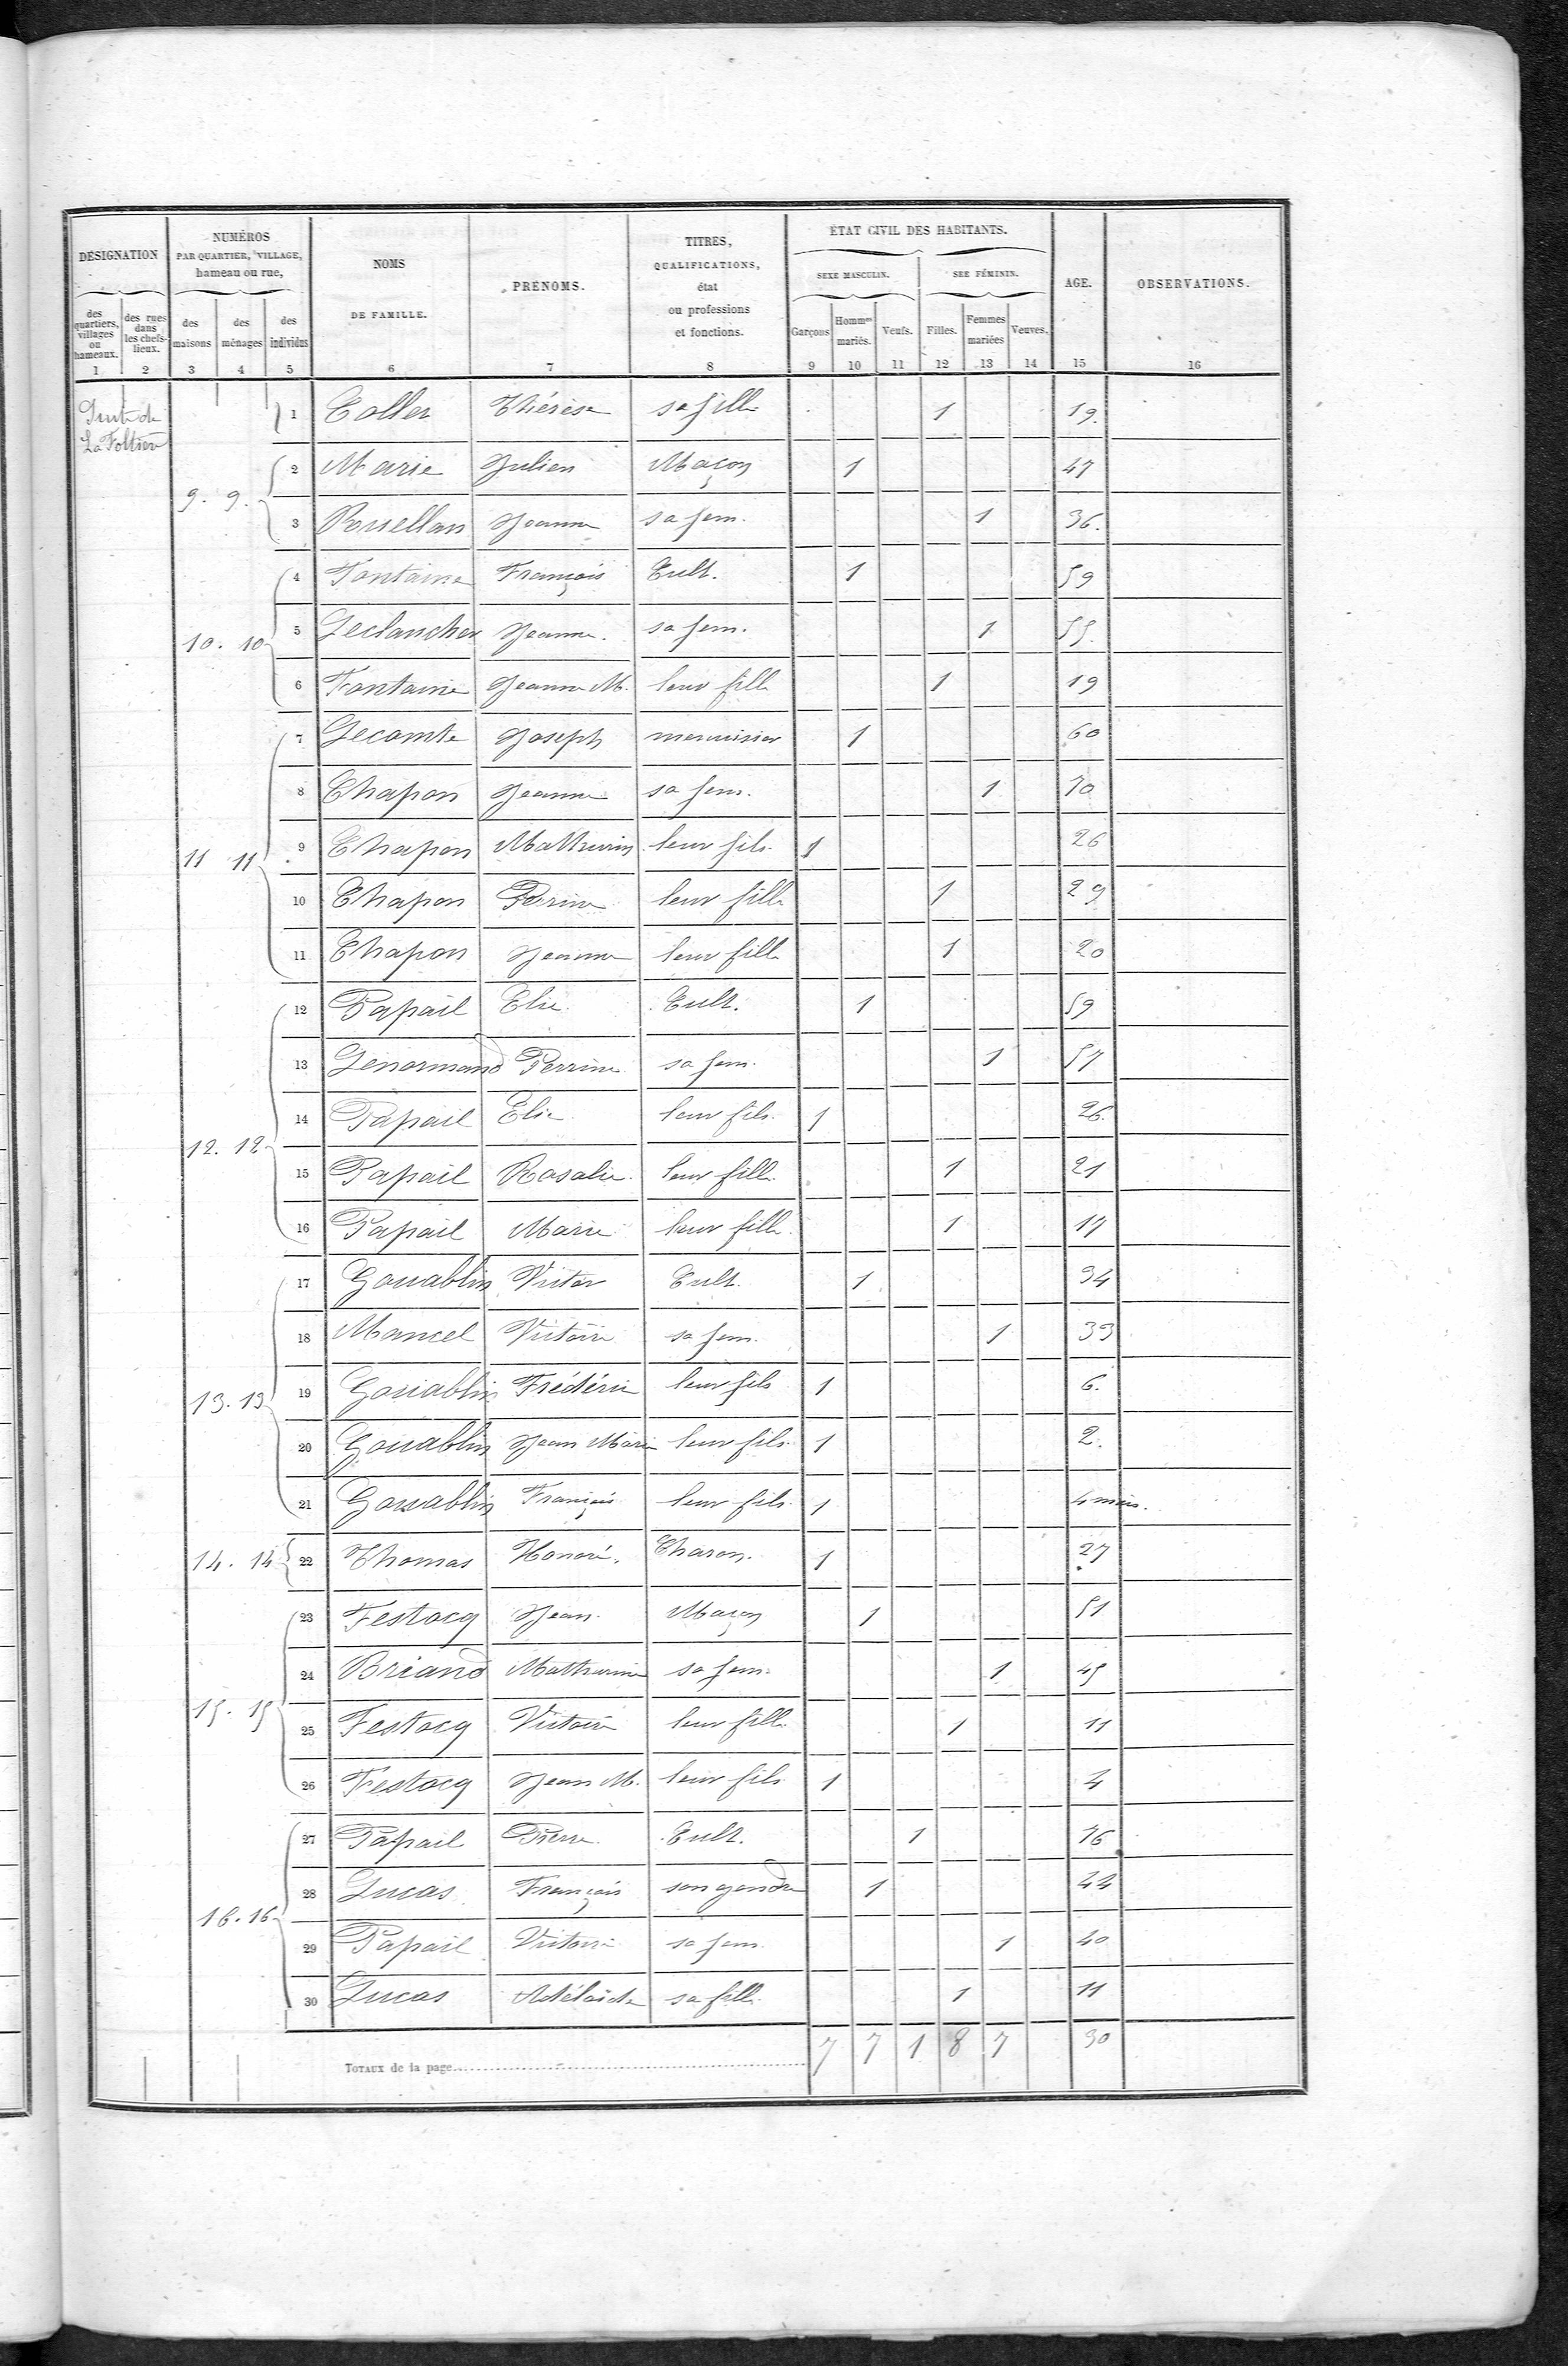 DÉSIGNATION
NUMÉROS
PAR QUARTIER, VILLAGE,
hameau ou rue,
NOMS
DE FAMILLE.
PRÉNOMS.
TITRES,
QUALIFICATIONS,
état
ou professions
et fonctions.
ÉTAT CIVIL DES HABITANTS.
SEXE MASCULIN.
SEE FÉMININ.
AGE.
OBSERVATIONS.
des quartiers, villages ou hameaux.
des rues dans les chefs-lieux.
des maisons
des ménages
des individus
Garçons
Hommes mariés.
Veufs.
Filles.
Femmes mariées
Veuves.
1 2 3 4 5 6 7 8 9 10 11 12 13 14 15 16
La Foltière
1 Coller Thérèse sa fille 1 19.
2 Marie Julien Maçon 1 47
9. 9.
3 Jeanne sa fem. 1 36.
4 Fontaine François Cult. 1 59
10. 10
5 Leclancher Jeanne. sa fem. 1 55.
6 Fontaine Jeanne M. leur fille 1 19
7 Lecomte Joseph menuisier 1 60
8 Chapon Jeanne sa fem. 1 70
11 11
9 Chapon Mathurin leur fils. 1 26
10 Chapon Perrine leur fille 1 29
11 Chapon Jeanne leur fille 1 20
12 Papail Elie. Cult. 1 59
13 Lenormand Perrine sa fem. 1 57
14 Papail Elie leur fils. 1 26.
12. 12
15 Papail Rosalie. leur fille. 1 21
16 Papail Marie leur fille. 1 17
17 Gouablin Victor Cult. 1 34
18 Mancel Victoire sa fem. 1 33
13. 13
19 Gouablin Frédéric leur fils 1 6.
20 Gouablin Jean Marie leur fils. 1 2.
21 Gouablin François leur fils. 1 4 mois.
14. 14
22 Thomas Honoré. Charon. 1 27
23 Festocq Jean. Maçon 1 51
24 Briand Mathurine sa fem. 1 45
15. 15
25 Festocq Victoire leur fille. 1 11
26 Festocq Jean M. leur fils 1 4
27 Papail Pierre. Cult. 1 76
28 Lucas François son gendre 1 44
16. 16
29 Papail Victoire sa fem 1 40
30 Lucas Adélaide sa fille. 1 11
TOTAUX de la page 7 7 1 8 7 30